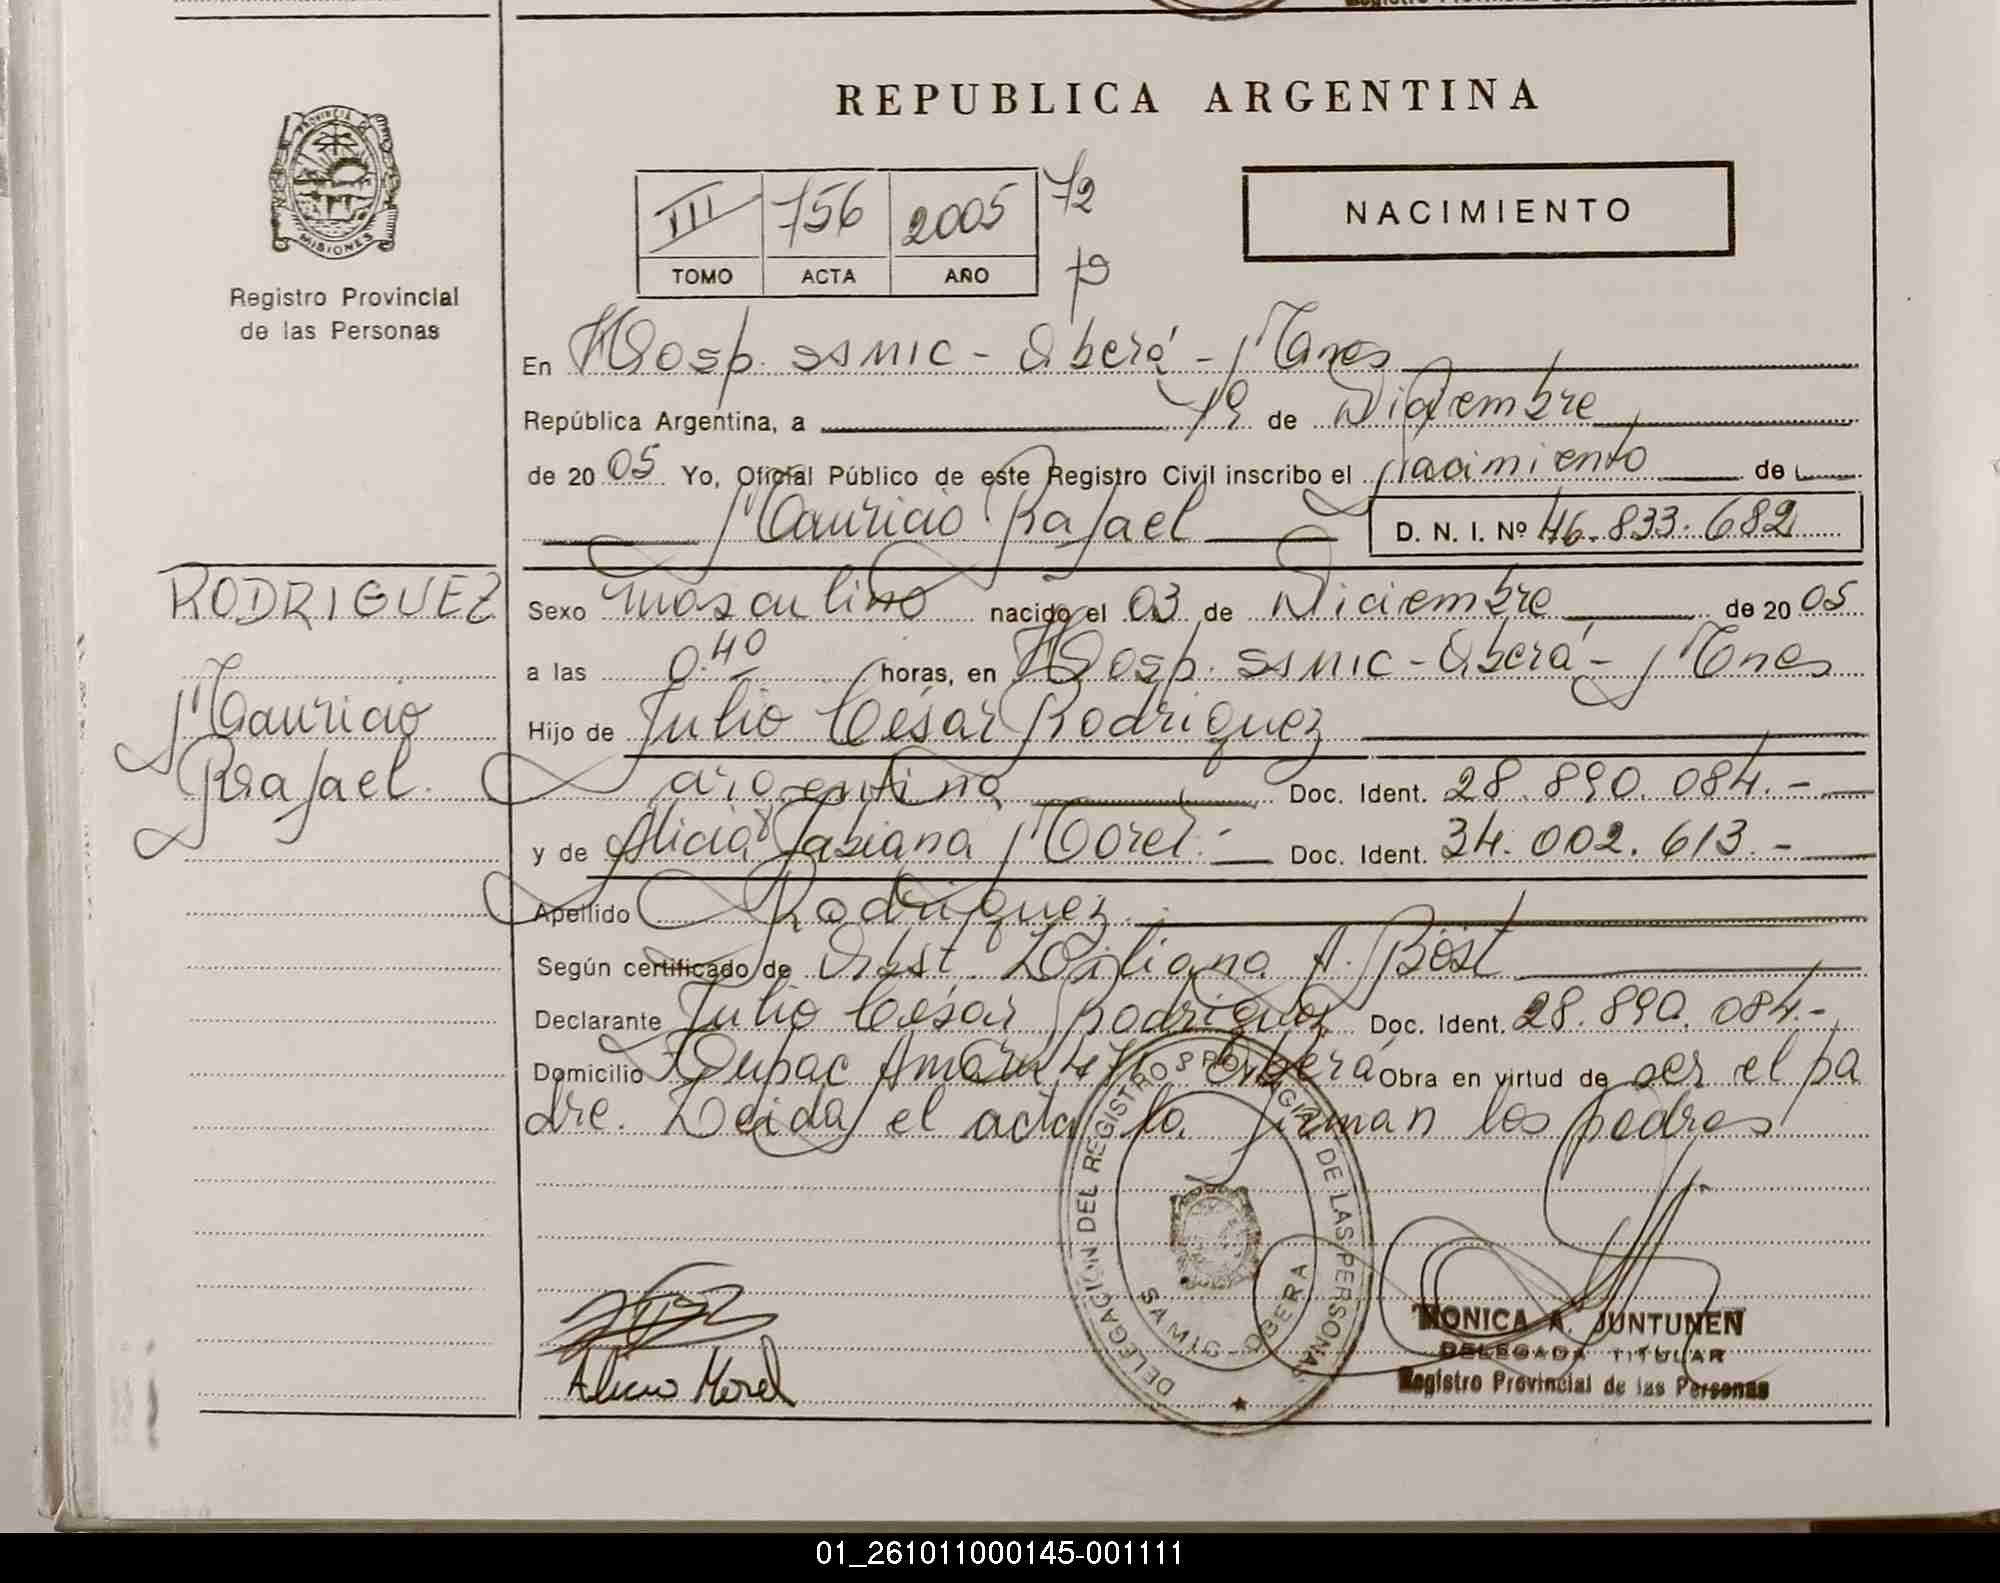 REPUBLICA ARGENTINA
PROVINCIA DE
MISIONES
Registro Provincial
de las Personas
III 756 2005 72
TOMO ACTA AÑO
NACIMIENTO
En Hosp. SAMIC - Oberá - Mnes
República Argentina, a 19 de Diciembre
de 2005 Yo, Oficial Público de este Registro Civil inscribo el Nacimiento de
Mauricio Rafael D. N. I. Nº 46.833.682
RODRIGUEZ
Mauricio
Rafael.
Sexo masculino nacido el 03 de Diciembre de 2005
a las 0.40 horas, en Hosp. SAMIC - Oberá - Mnes
Hijo de Julio César Rodriguez
argentino Doc. Ident. 28.890.084.-
y de Alicia Fabiana Morel.- Doc. Ident. 34.002.613.-
Apellido Rodriguez.
Según certificado de Obst. Liliana A. Bost
Declarante Julio César Rodriguez Doc. Ident. 28.890.084.-
Domicilio Tupac Amarú Oberá Obra en virtud de ser el pa
dre. Leida el acta la firman los padres
DELEGACION DEL REGISTRO PROVINCIAL DE LAS PERSONAS
SAMIC - OBERA
Alicia Morel
MONICA A. JUNTUNEN
DELEGADA TITULAR
Registro Provincial de las Personas
01_261011000145-001111